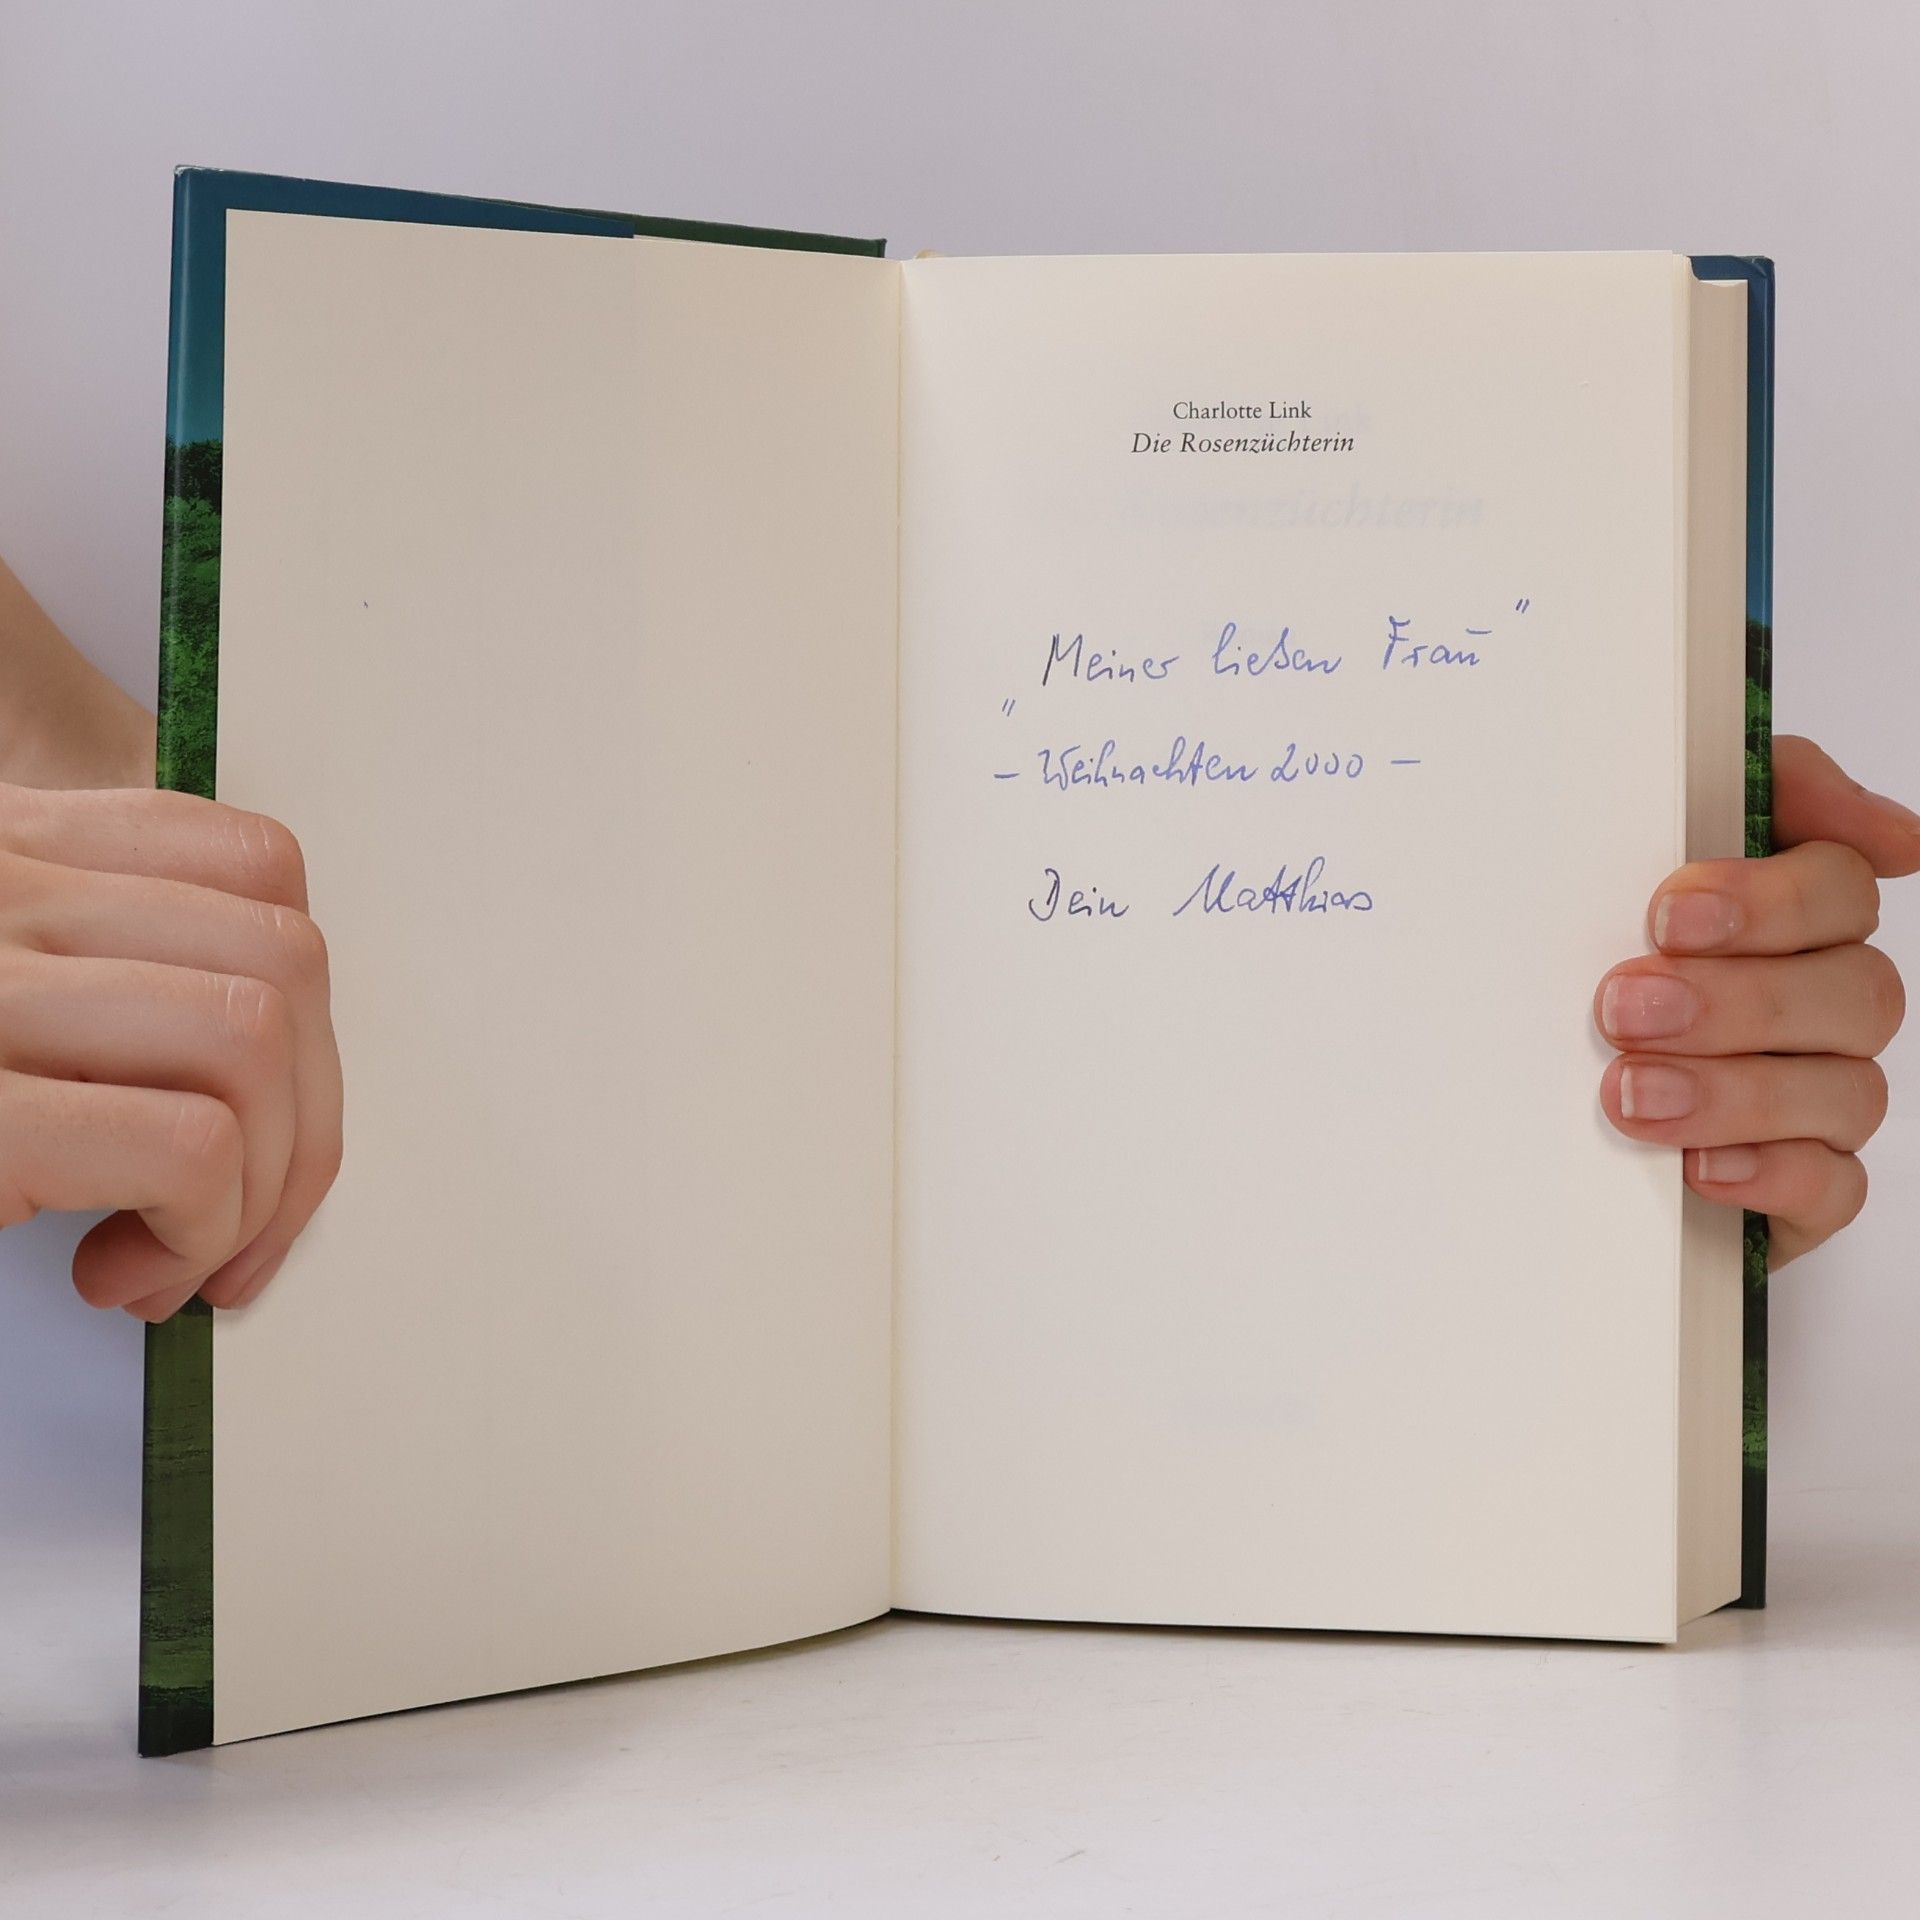 Charlotte Link
Die Rosenzüchterin
„Meiner lieben Frau"
- Weihnachten 2000 -
Dein Matthias